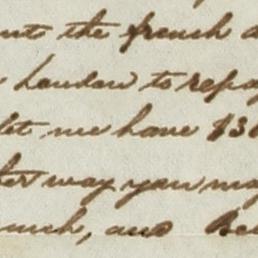 the french
London to repay
let me have $30
way you may
much, and